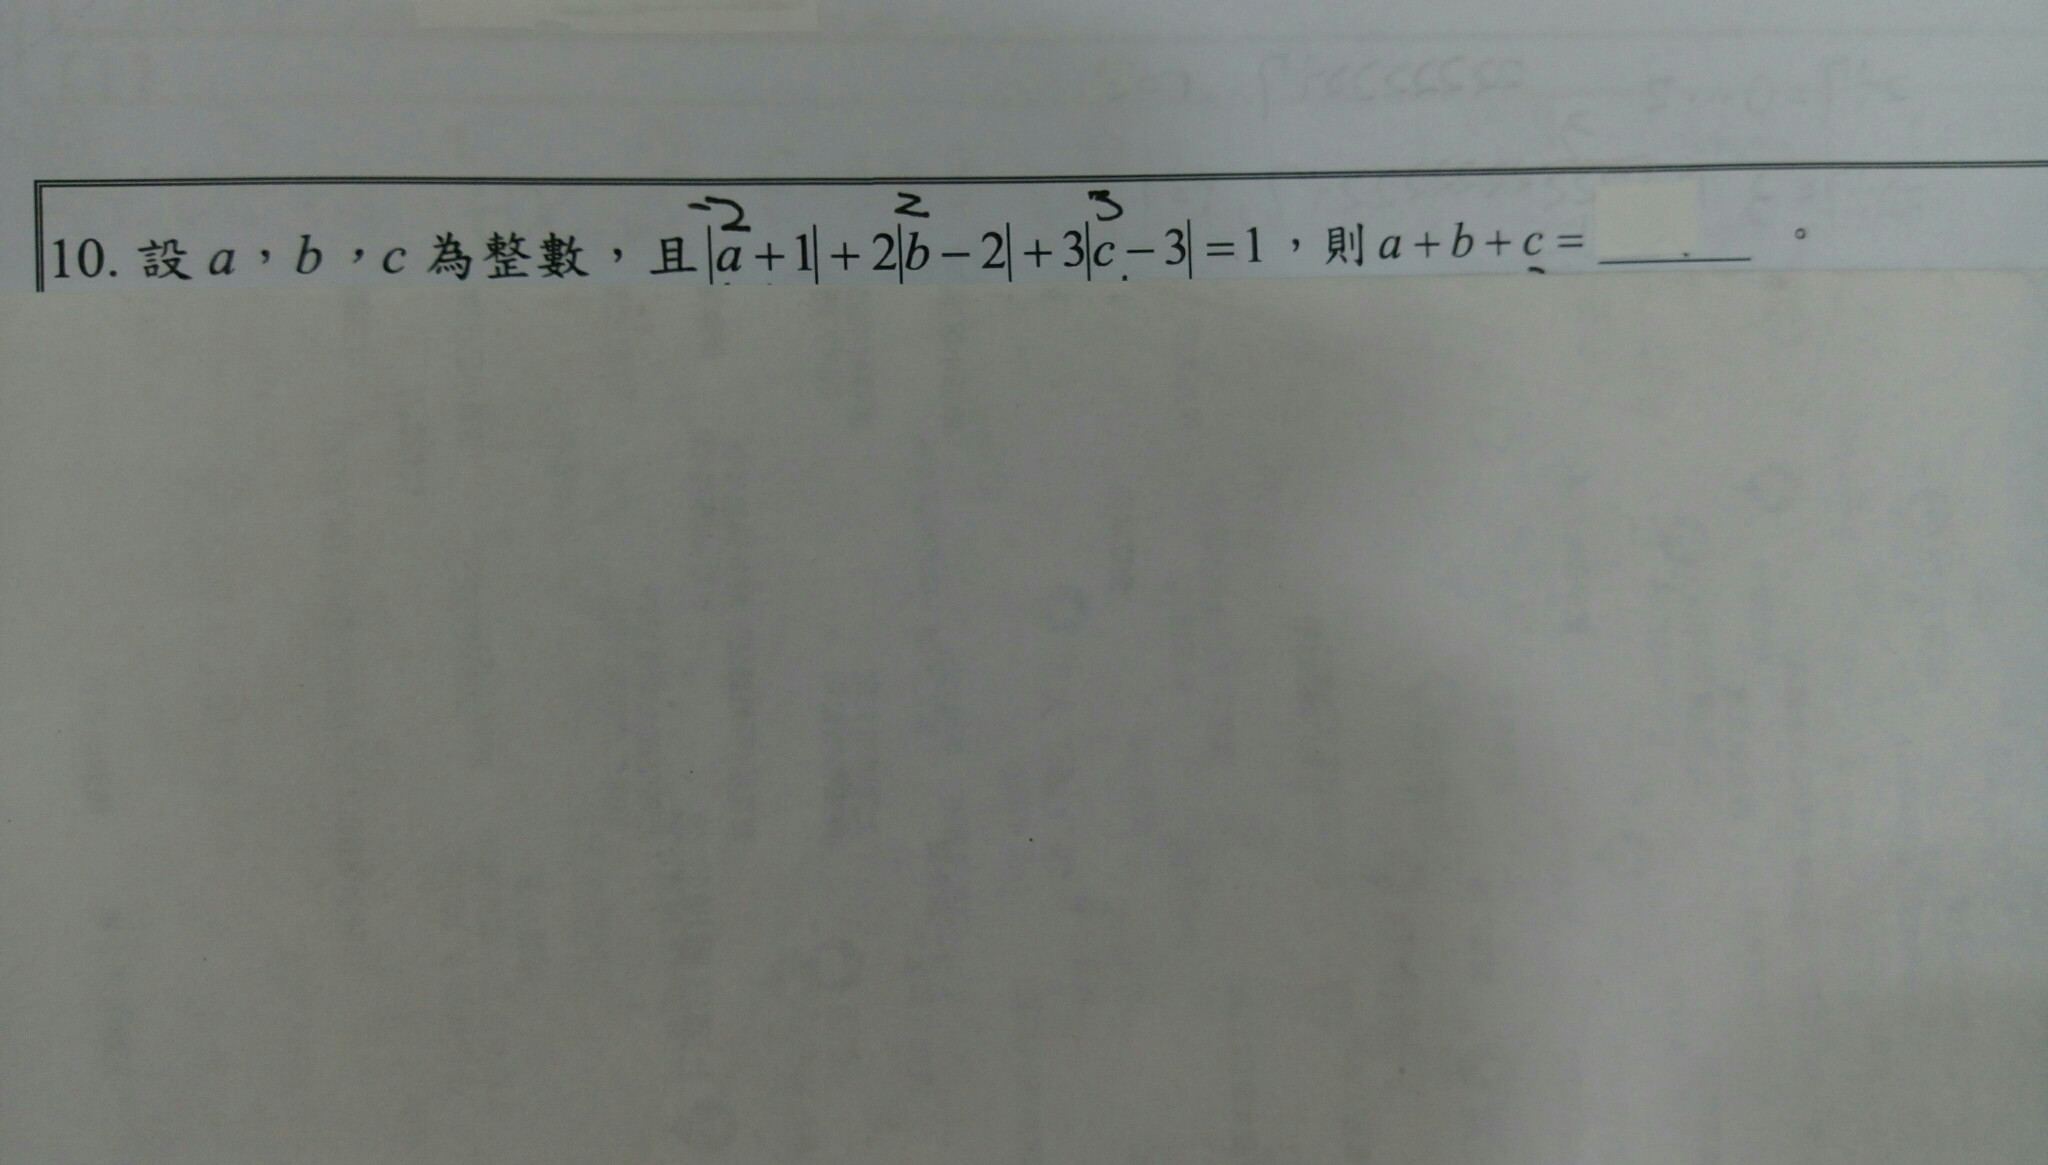 -2 2 3
10. 設 a，b，c 為整數，且|a+1|+2|b-2|+3|c-3|=1，則 a+b+c=______。